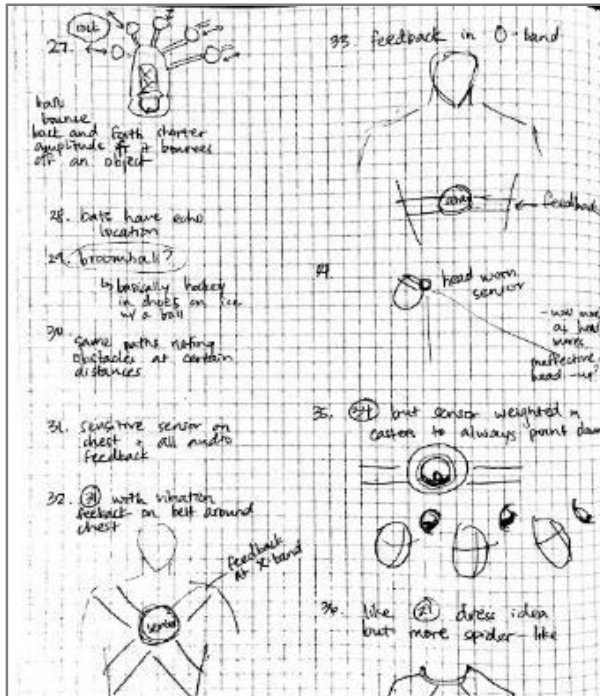 27.
ball
bounce
back and forth shorter
amplitude if it bounces
off an object
28. bats have echo
location
29. broomball?
↳ basically hockey
in shoes on ice
w/ a ball
30.
same paths noting
obstacles at certain
distances
31. sensitive sensor on
chest + all audio
feedback
32. 31 with vibration
feeback on belt around
chest
feedback
at X-band
sensor
33. feedback in O-band
feedback
head worn
sensor
as head
moves
ineffective
head-up?
35. 34 but sensor weighted
casters to always point down
36. like 21 dress idea
but more spider-like